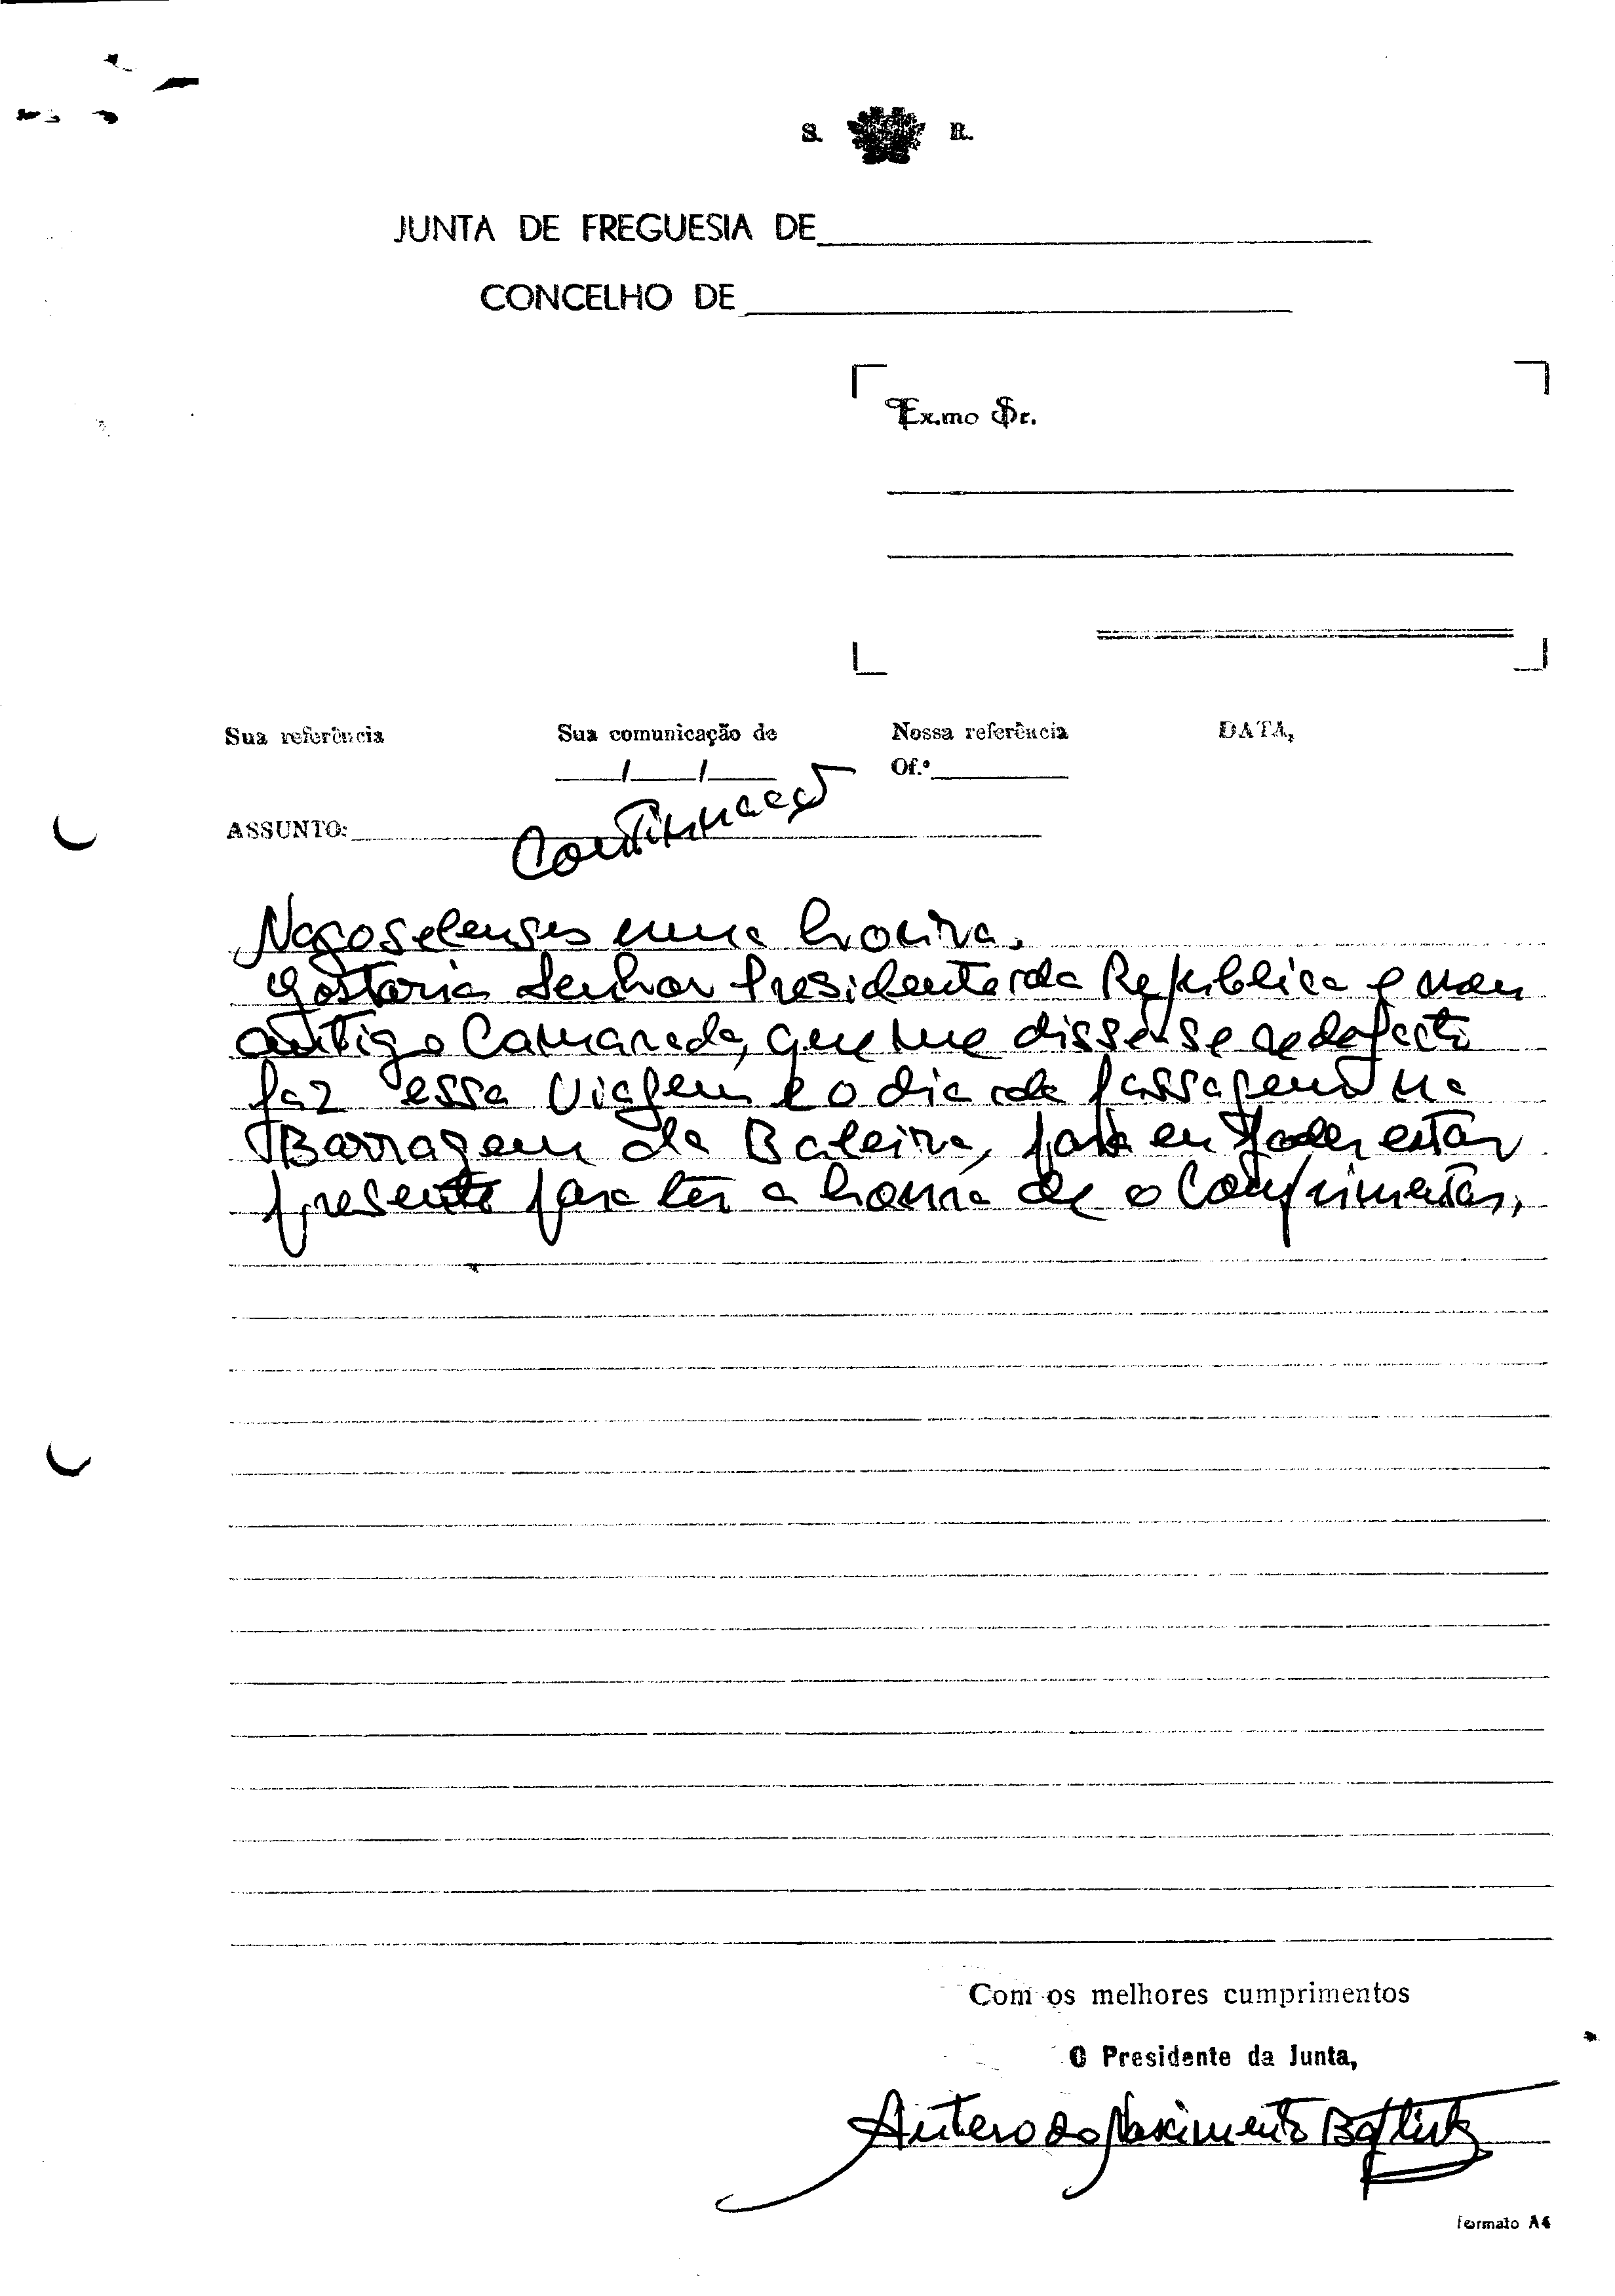 S. R.
JUNTA DE FREGUESIA DE
CONCELHO DE
Ex.mo Sr.
Sua referência Sua comunicação de Nossa referência DATA,
/ / Of.º
ASSUNTO: Continuação
Nagoselenses uma honra.
Gostaria Senhor Presidente da República e meu
antigo Camarada, que me dissesse se de facto
faz essa Viagem e o dia da passagem na
Barragem da Valeira, para eu poder estar
presente para ter a honra de o Comprimentar,
Com os melhores cumprimentos
O Presidente da Junta,
Antero do Nascimento Baptista
formato A4